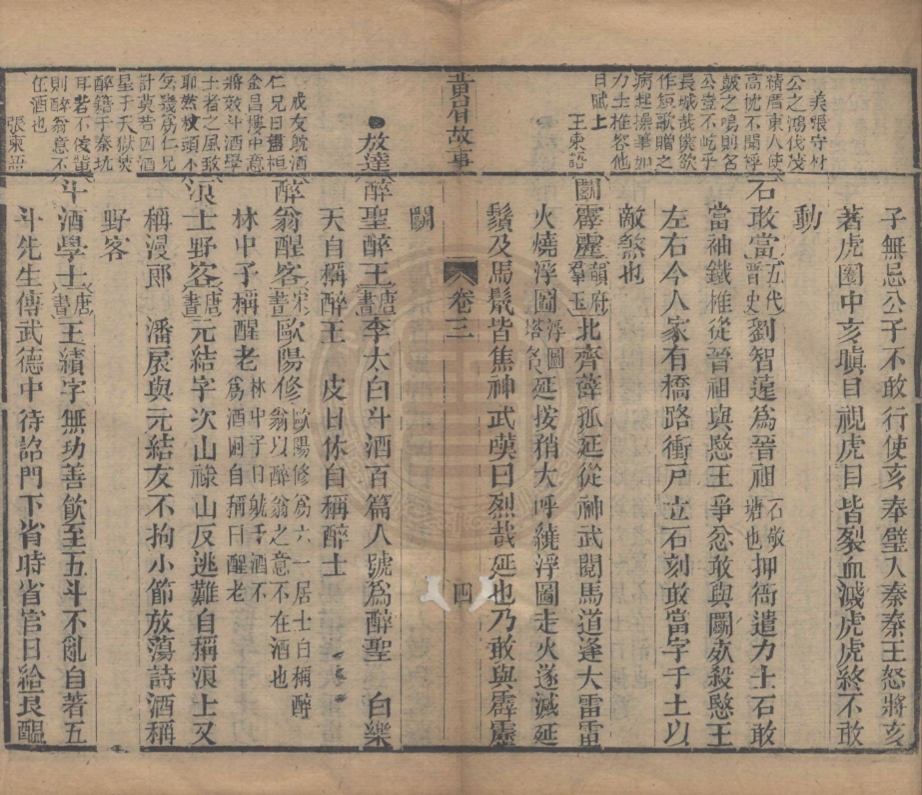 美張守材
公之鴻伐茂
精厝東人使
高枕不聞桴
鼓之鳴則名
公豈不屹乎
長城哉僕欲
作短歌贈之
病埋操筆如
力士椎客他
日賦上
王東語
子無忌公子不敢行使亥奉璧入秦秦王怒將亥
著虎圈中亥瞋目視虎目皆裂血濺虎虎終不敢
動
石敢當五代晉史劉智遠為晉祖石敬塘也押衙遣力士石敢
當袖鐵椎從晉祖與愍王爭忿敢與鬬死殺愍王
左右今人家有橋路衝戶立石刻敢當字于土以
敵煞也
鬬霹靂韻府羣玉北齊薛孤延從神武閱馬道逢大雷雷
火燒浮圖浮圖塔名延按矟大呼繞浮圖走火遂滅延
鬚及馬鬛皆焦神武嘆曰烈哉延也乃敢與霹靂
黃眉故事
卷三
四
鬬
放達
成友耽酒
仁兄日晝桓
金昌摟中意
將效斗酒學
士者之風致
耶然枕頭不
計莫若囚酒
星于天獄焚
醉籍于秦坑
耳若不俊冀
則醉翁意不
在酒也
張東語
醉聖醉王唐書李太白斗酒百篇人號為醉聖 白樂
天自稱醉王 皮日休自稱醉士
醉翁醒客宋書歐陽修歐陽修為六一居士自稱醉翁以醉翁之意不在酒也
林中予稱醒老林中予曰觥予酒不為酒困自稱曰醒老
浪士野客唐書元結字次山祿山反逃難自稱浪士又
稱漫郎 潘㞡與元結友不拘小節放蕩詩酒稱
野客
斗酒學士唐書王績字無功善飲至五斗不亂自著五
斗先生傳武德中待詔門下省時省官日給良醞